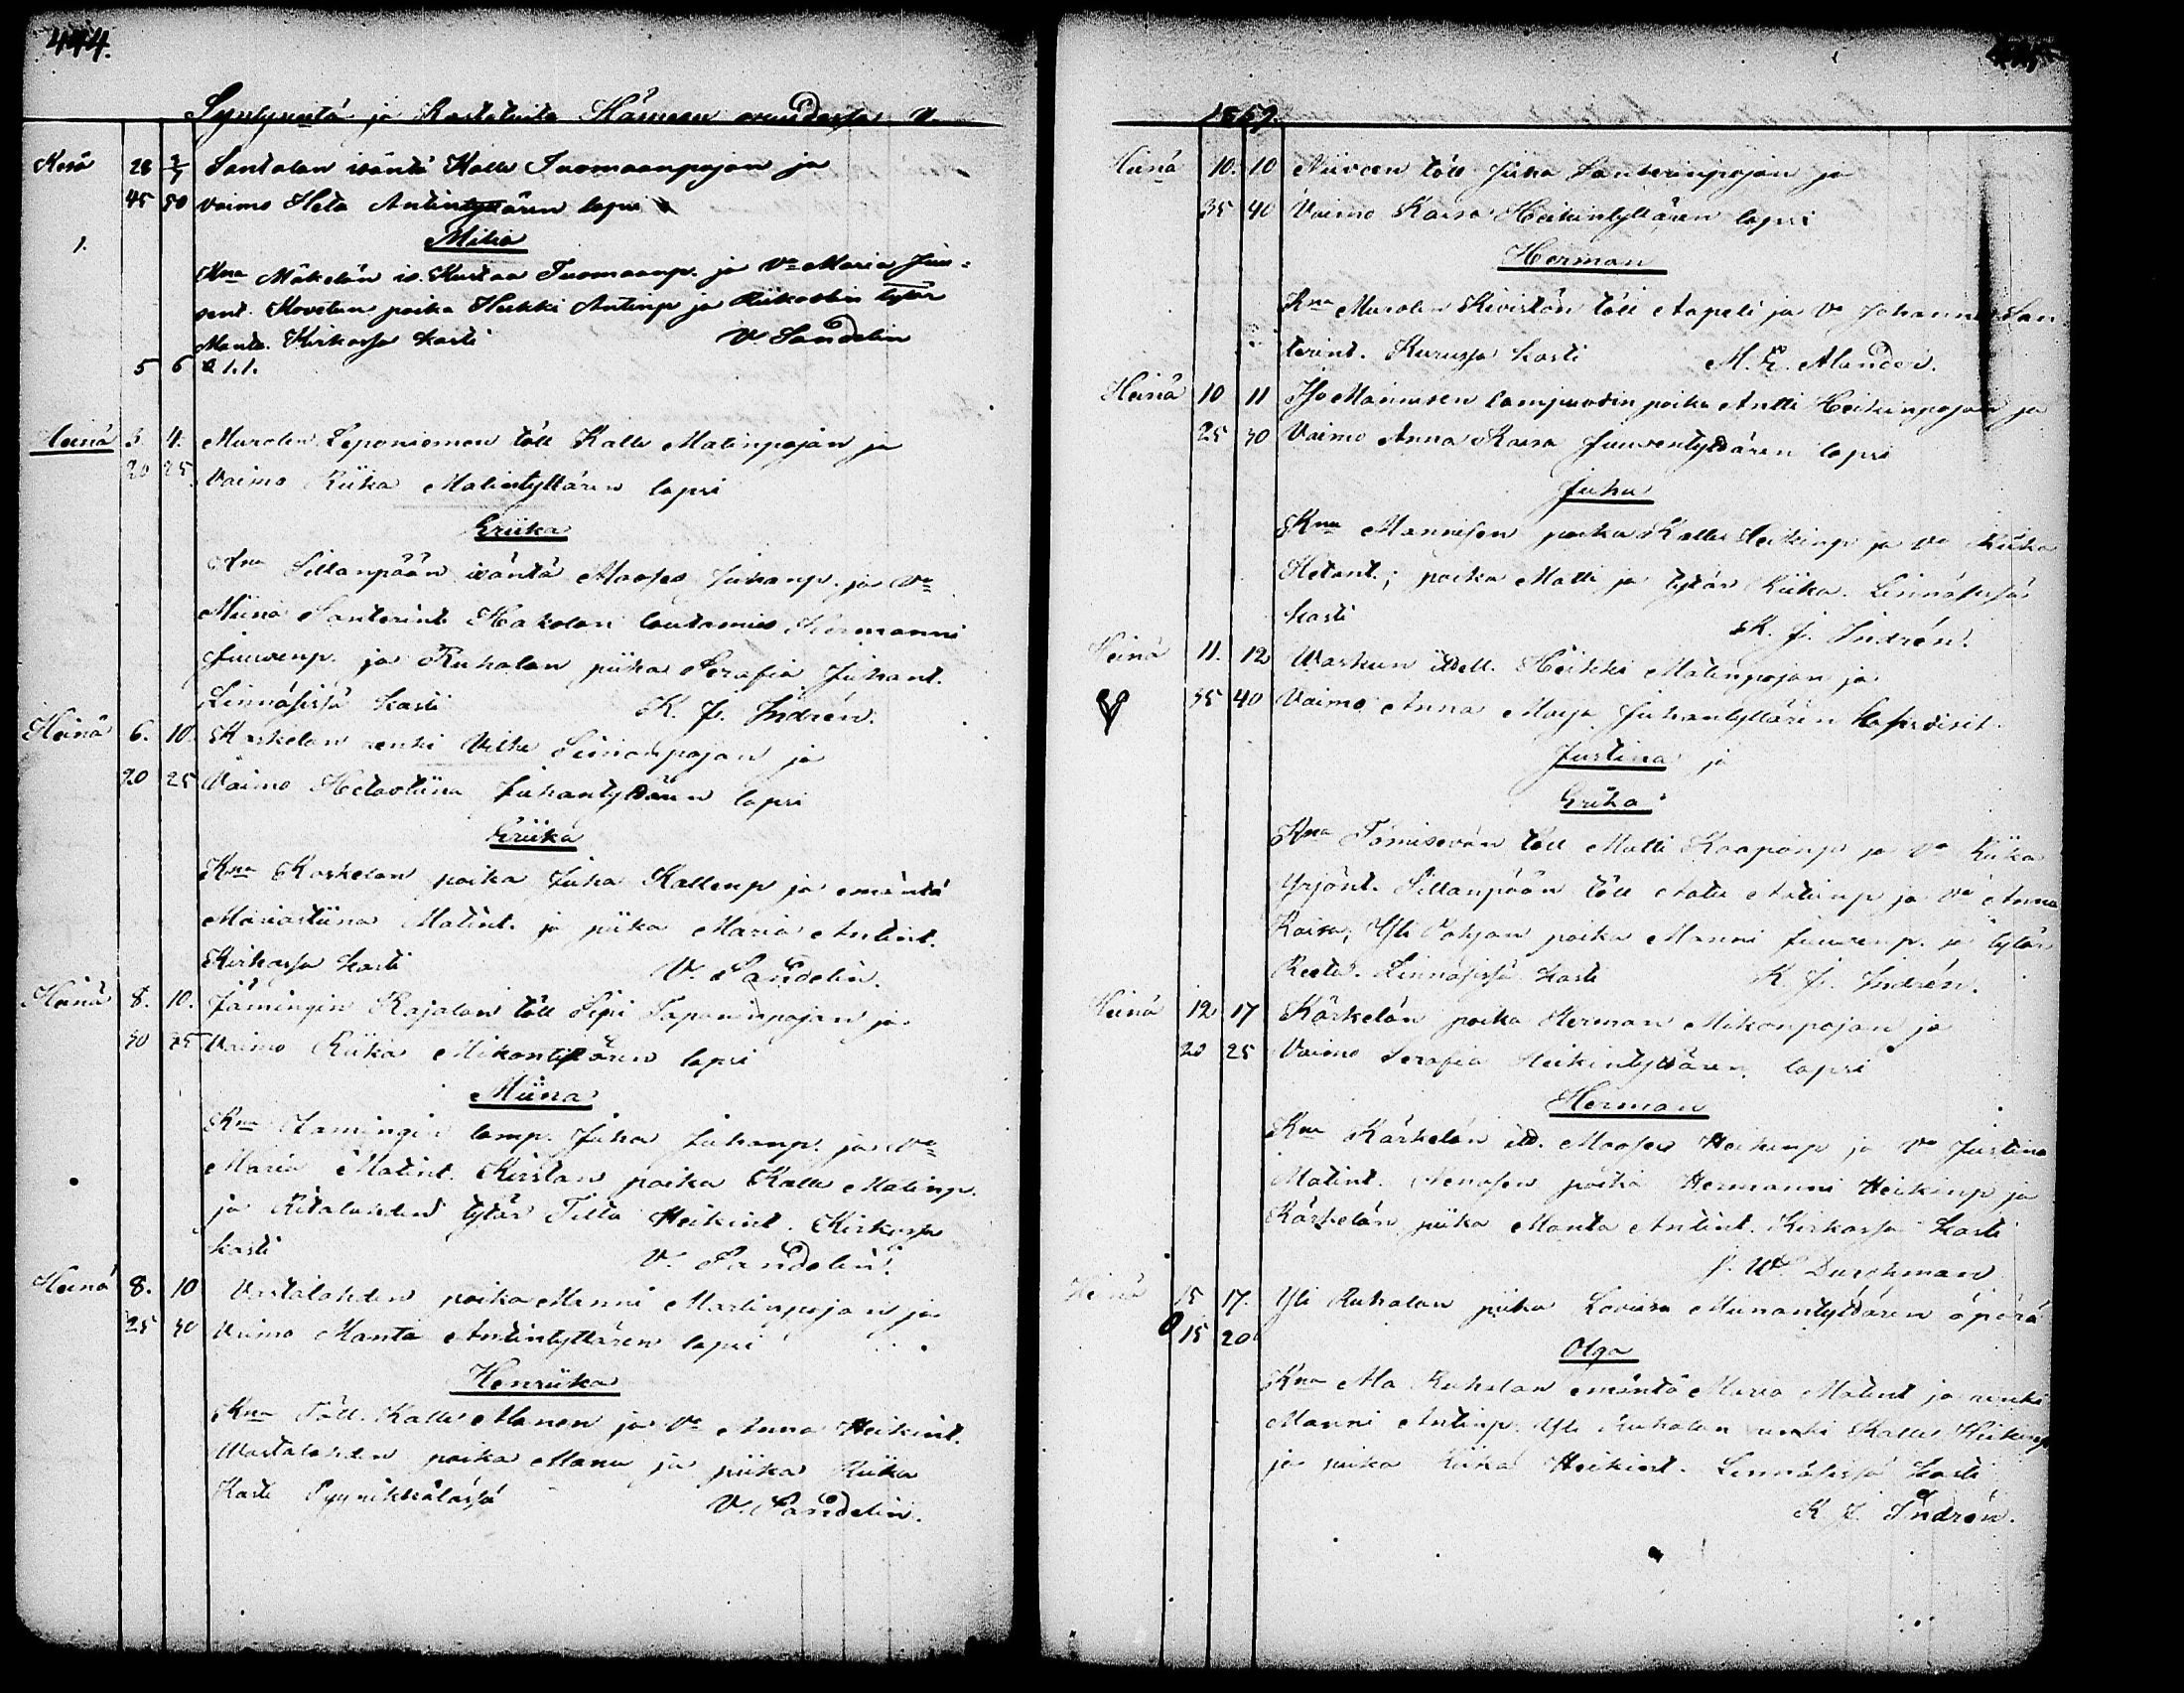 444.
Syntyneitä ja Kastetuita Hämeen v.
Kesä 28 2/7 Santalan isäntä Kalle Tuomaanpojan ja
45 50 vaimo Heta Antintyttären lapsi
Milia
1.
Kna Mäkelän is. Kustaa Tuomaanp. ja Va Maria Juu-
sent. poika Heikki Antinp ja tytär
Manta. Kirkossa kasti V. Sandelin
5 6 1.1.
Heinä 3. 4. Murolen Leponiemen töll Kalle Matinpojan ja
20 25 Vaimo Riika Matintyttären lapsi
Eriika
Kna Sillanpään isäntä Mooses Juhanp. ja Va
Miina Santerint. Hakolan lautamies Hermanni
Juuvenp. ja Ruhalan piika Serafia Juhant.
Linnäsissä kasti K. J. Indrén.
Heinä 6. 10. Koskelan renki Vilhe pojan ja
20 25 Vaimo Hetastiina Juhantyttären lapsi
Eriika
Kna Koskelan poika Juha Kallenp ja emäntä
Mariastiina Matint. ja piika Maria Antint.
Kirkossa kasti V. Sandelin.
Heinä 8. 10. Jämingin Rajalan töll Sipi Tapaninpojan ja
30 35 Vaimo Riika Mikontyttären lapsi
Miina
Kna Jämingin lamp. Juha Juhanp. ja Va
Maria Matint. Kirstan poika Kalle Matinp.
ja Ritalahden tytär Tilta Heikint. Kirkossa
kasti V. Sandelin.
Heinä 8. 10 Vastalahden poika Manni Martinpojan ja
25 30 Vaimo Manta Antintyttären lapsi
Henriika
Kna Töll. Kalle Manen ja Va Anna Heikint.
Wastalahden poika Manu ja piika Riika
Kasti V. Sandelin.
1859.
Heinä 10. 10 töll Juha Santerinpojan ja
35 40 Vaimo Kaisa Heikintyttären lapsi
Herman
Kna Murolen Kivistön töll Aapeli ja Va Johanna San
terint. Kurussa kasti M. E. Alander.
Heinä 10 11 Iso Mannisen lampuodin poika Antti Heikinpojan ja
25 30 Vaimo Anna Kaisa Juuventyttären lapsi
Juha
Kna Mannisen poika Kalle Heikinp ja Va Riika
Hetant.; poika Matti ja tytär Riika. Linnäsissä
kasti K. J. Indrén.
Heinä 11. 12 Waskun Heikki Matinpojan ja
35 40 Vaimo Anna Maja Juhantyttären kaksoiset.
Justina ja
Eriika
Kna Tämisevän töll Matti Kaaponp ja Va Riika
Yrjönt. Sillanpään töll Aatu Antinp ja Va Anna
Kaisa; Yli Pohjan poika Manni Juuvenp. ja tytär
Reeta. Linnäsissä kasti K. J. Indrén.
Heinä 12 17 Kärkelän poika Herman Mikonpojan ja
20 25 Vaimo Serafia Heikintyttären lapsi
Herman
Kna Kärkelän Mooses Heikinp ja Va Justina
Matint. Nenosen poika Hermanni Heikinp ja
Kärkelän piika Manta Antint. Kirkossa kasti
J. W. Durchman
Heinä 15 17. Yli Ruhalan piika Loviisa Manantyttären äpärä
15 20
Olga
Kna Ala Ruhalan emäntä Maria Matint ja renki
Manni Antinp. Yli Ruhalan renki Kalle Heikinp
ja piika Riika Heikint. Linnäsissä kasti
K. J. Indrén.